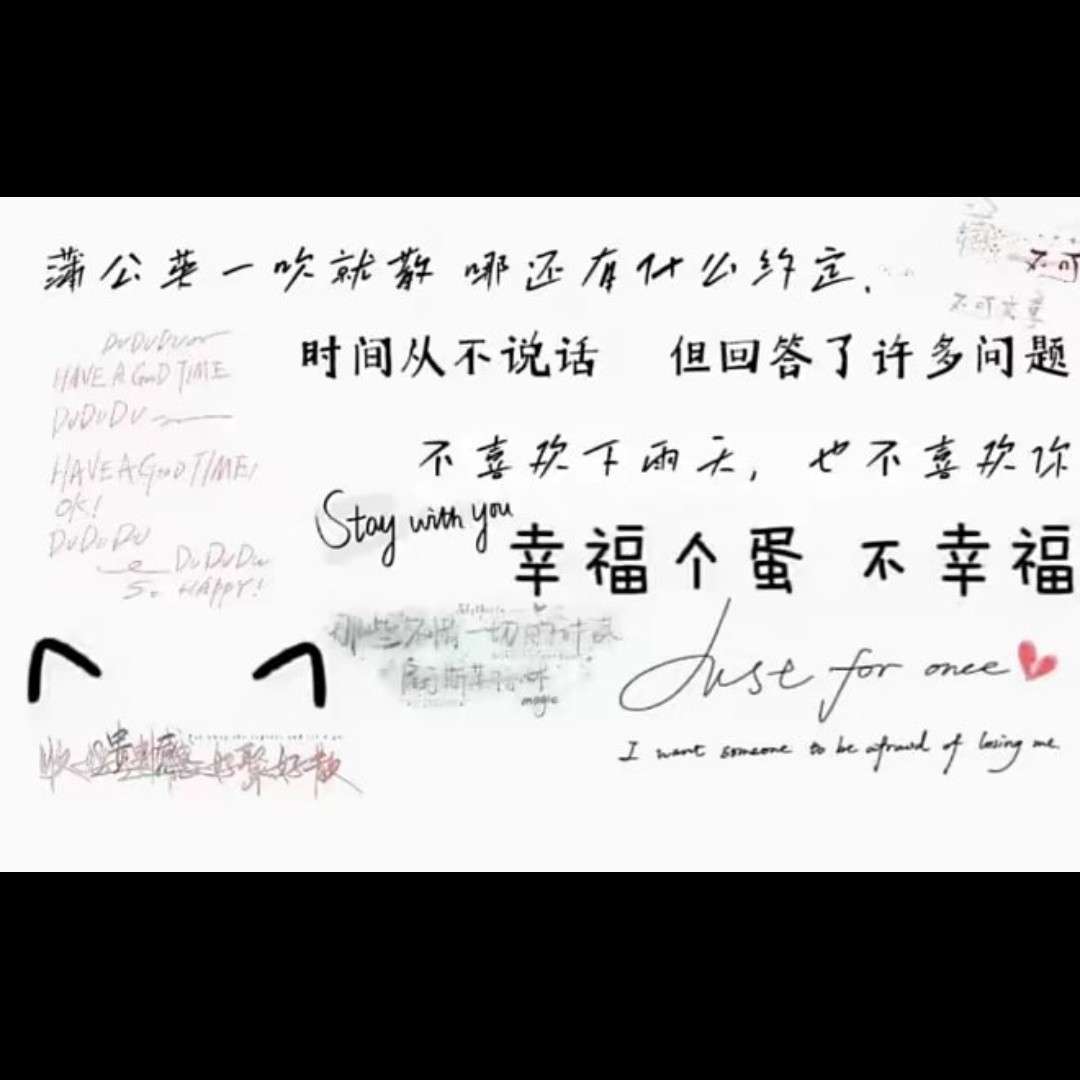 蒲公英一吹就散 哪还有什么约定.
不可
不可文章
时间从不说话 但回答了许多问题
DUDUDU
HAVE A GOOD TIME
DUDUDU
不喜欢下雨天, 也不喜欢你
HAVE A GOOD TIME!
OK!
DUDUDU
DUDUDU
SO HAPPY!
Stay with you
幸福个蛋 不幸福
一切的
magic
Just for once
I want someone to be afraid of losing me.
好聚好散